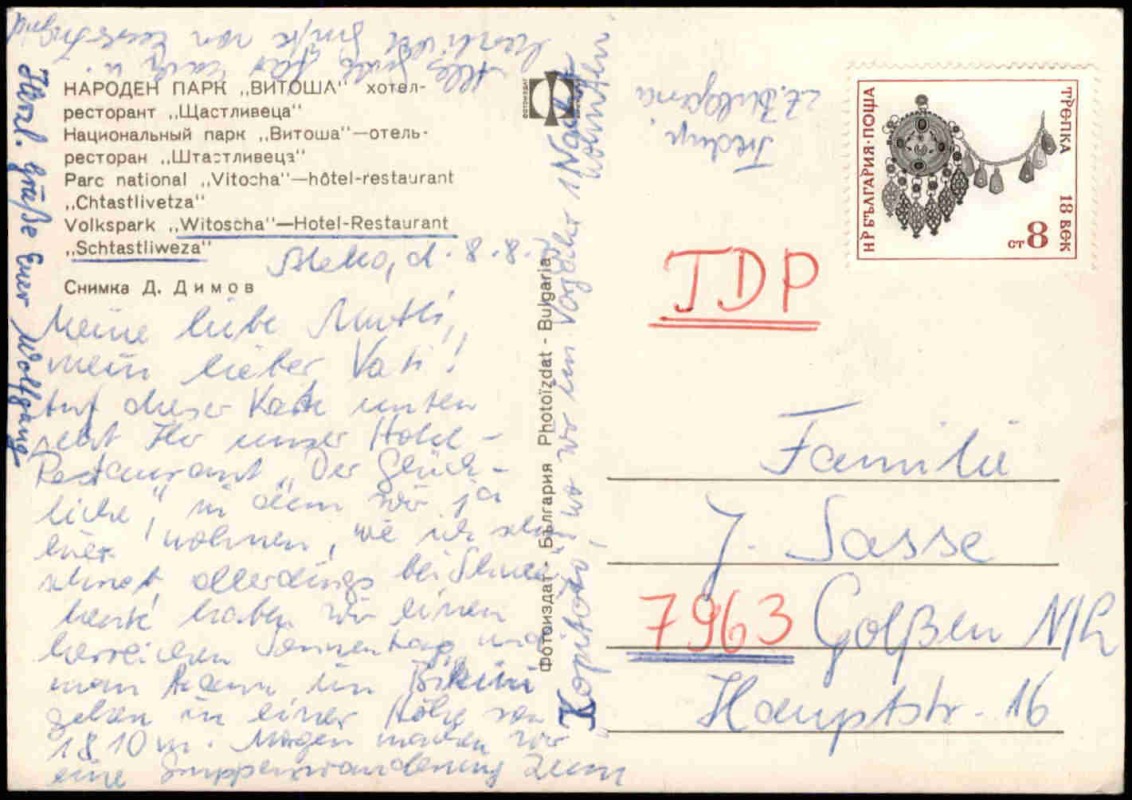 НАРОДЕН ПАРК „ВИТОША" хотел-
ресторант „Щастливеца"
Национальный парк „Витоша"—отель-
ресторан „Штастливеца"
Parc national „Vitocha"—hôtel-restaurant
„Chtastlivetza"
Volkspark „Witoscha"—Hotel-Restaurant
„Schtastliweza"
Снимка Д. Димов
Aleko, d. 8.8.
Meine liebe Mutti,
mein lieber Vati!
Auf dieser Karte unten
seht Ihr unser Hotel-
Restaurant „Der Glück-
liche", in dem wir ja
hier wohnen, wie ich schon
schrieb, allerdings bei
heute haben wir einen
herrlichen Sonnentag und
man kann im Bikini
gehen in einer Höhe von
1810 m. Morgen machen wir
eine Gruppenwanderung zum
„Kopitoto", wo wir im Vogelhr 1 Nacht
Alles Gute für Euch u.
herzliche Grüße von Eurer
Herzl. Grüße Euer Wolfgang
Фотоиздат - България Photoïzdat - Bulgaria
фотоиздат
z. Z. Bulgaria
НР БЪЛГАРИЯ·ПОЩА
ТРЕПКА 18 ВЕК
8 СТ
DDR
Familie
J. Sasse
7963 Golßen N/L
Hauptstr. 16